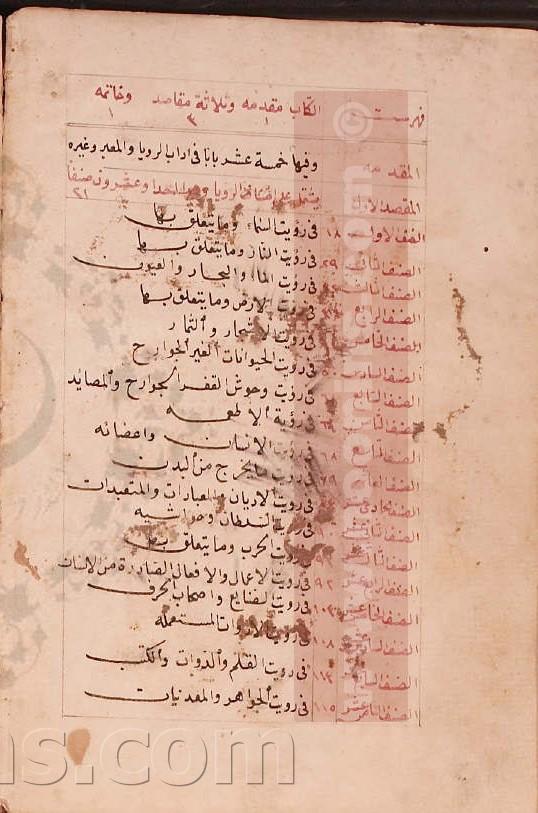 فهرست الكتاب مقدمه وثلاثة مقاصد وخاتمه
١ ٣ ١
المقدمه وفيها خمسة عشر بابا في اداب الرويا والمعبر وغيره
المقصد الاول يشتمل على الرويا احدا وعشرون صنفا
٢١
الصنف الاول ١٨ في رؤيت السماء وما يتعلق بها
الصنف الثاني ٢٩ في رؤيت النار وما يتعلق بها
الصنف الثالث في رؤيت الماء والبحار والعيون
الصنف الرابع في رويت الارض وما يتعلق بها
الصنف الخامس في رويت الاشجار والثمار
الصنف السادس في رويت الحيوانات الغير الجوارح
الصنف السابع في رؤيت وحوش القفر الجوارح والمصائد
الصنف الثامن في رؤية الاطعمه
الصنف التاسع ٦٨ في رويت الانسان واعضائه
الصنف العاشر ٧٩ في رويت ما يخرج من البدن
الصنف الحادي عشر في رويت الاديان والعبادات والمتعبدات
الصنف الثاني عشر في رويت السلطان وحواشيه
الصنف الثالث عشر في رويت الحرب وما يتعلق بها
الصنف الرابع عشر ٩٢ في رويت الاعمال والافعال الصادرة من الانسان
الصنف الخامس عشر ١٠٣ في رويت الصنايع واصحاب الحرف
الصنف السادس عشر ١٠٨ في رويت الادوات المستعمله
الصنف السابع عشر ١١٣ في رويت القلم والدوات والكتب
الصنف الثامن عشر ١١٥ في رويت الجواهر والمعدنيات
ns.com